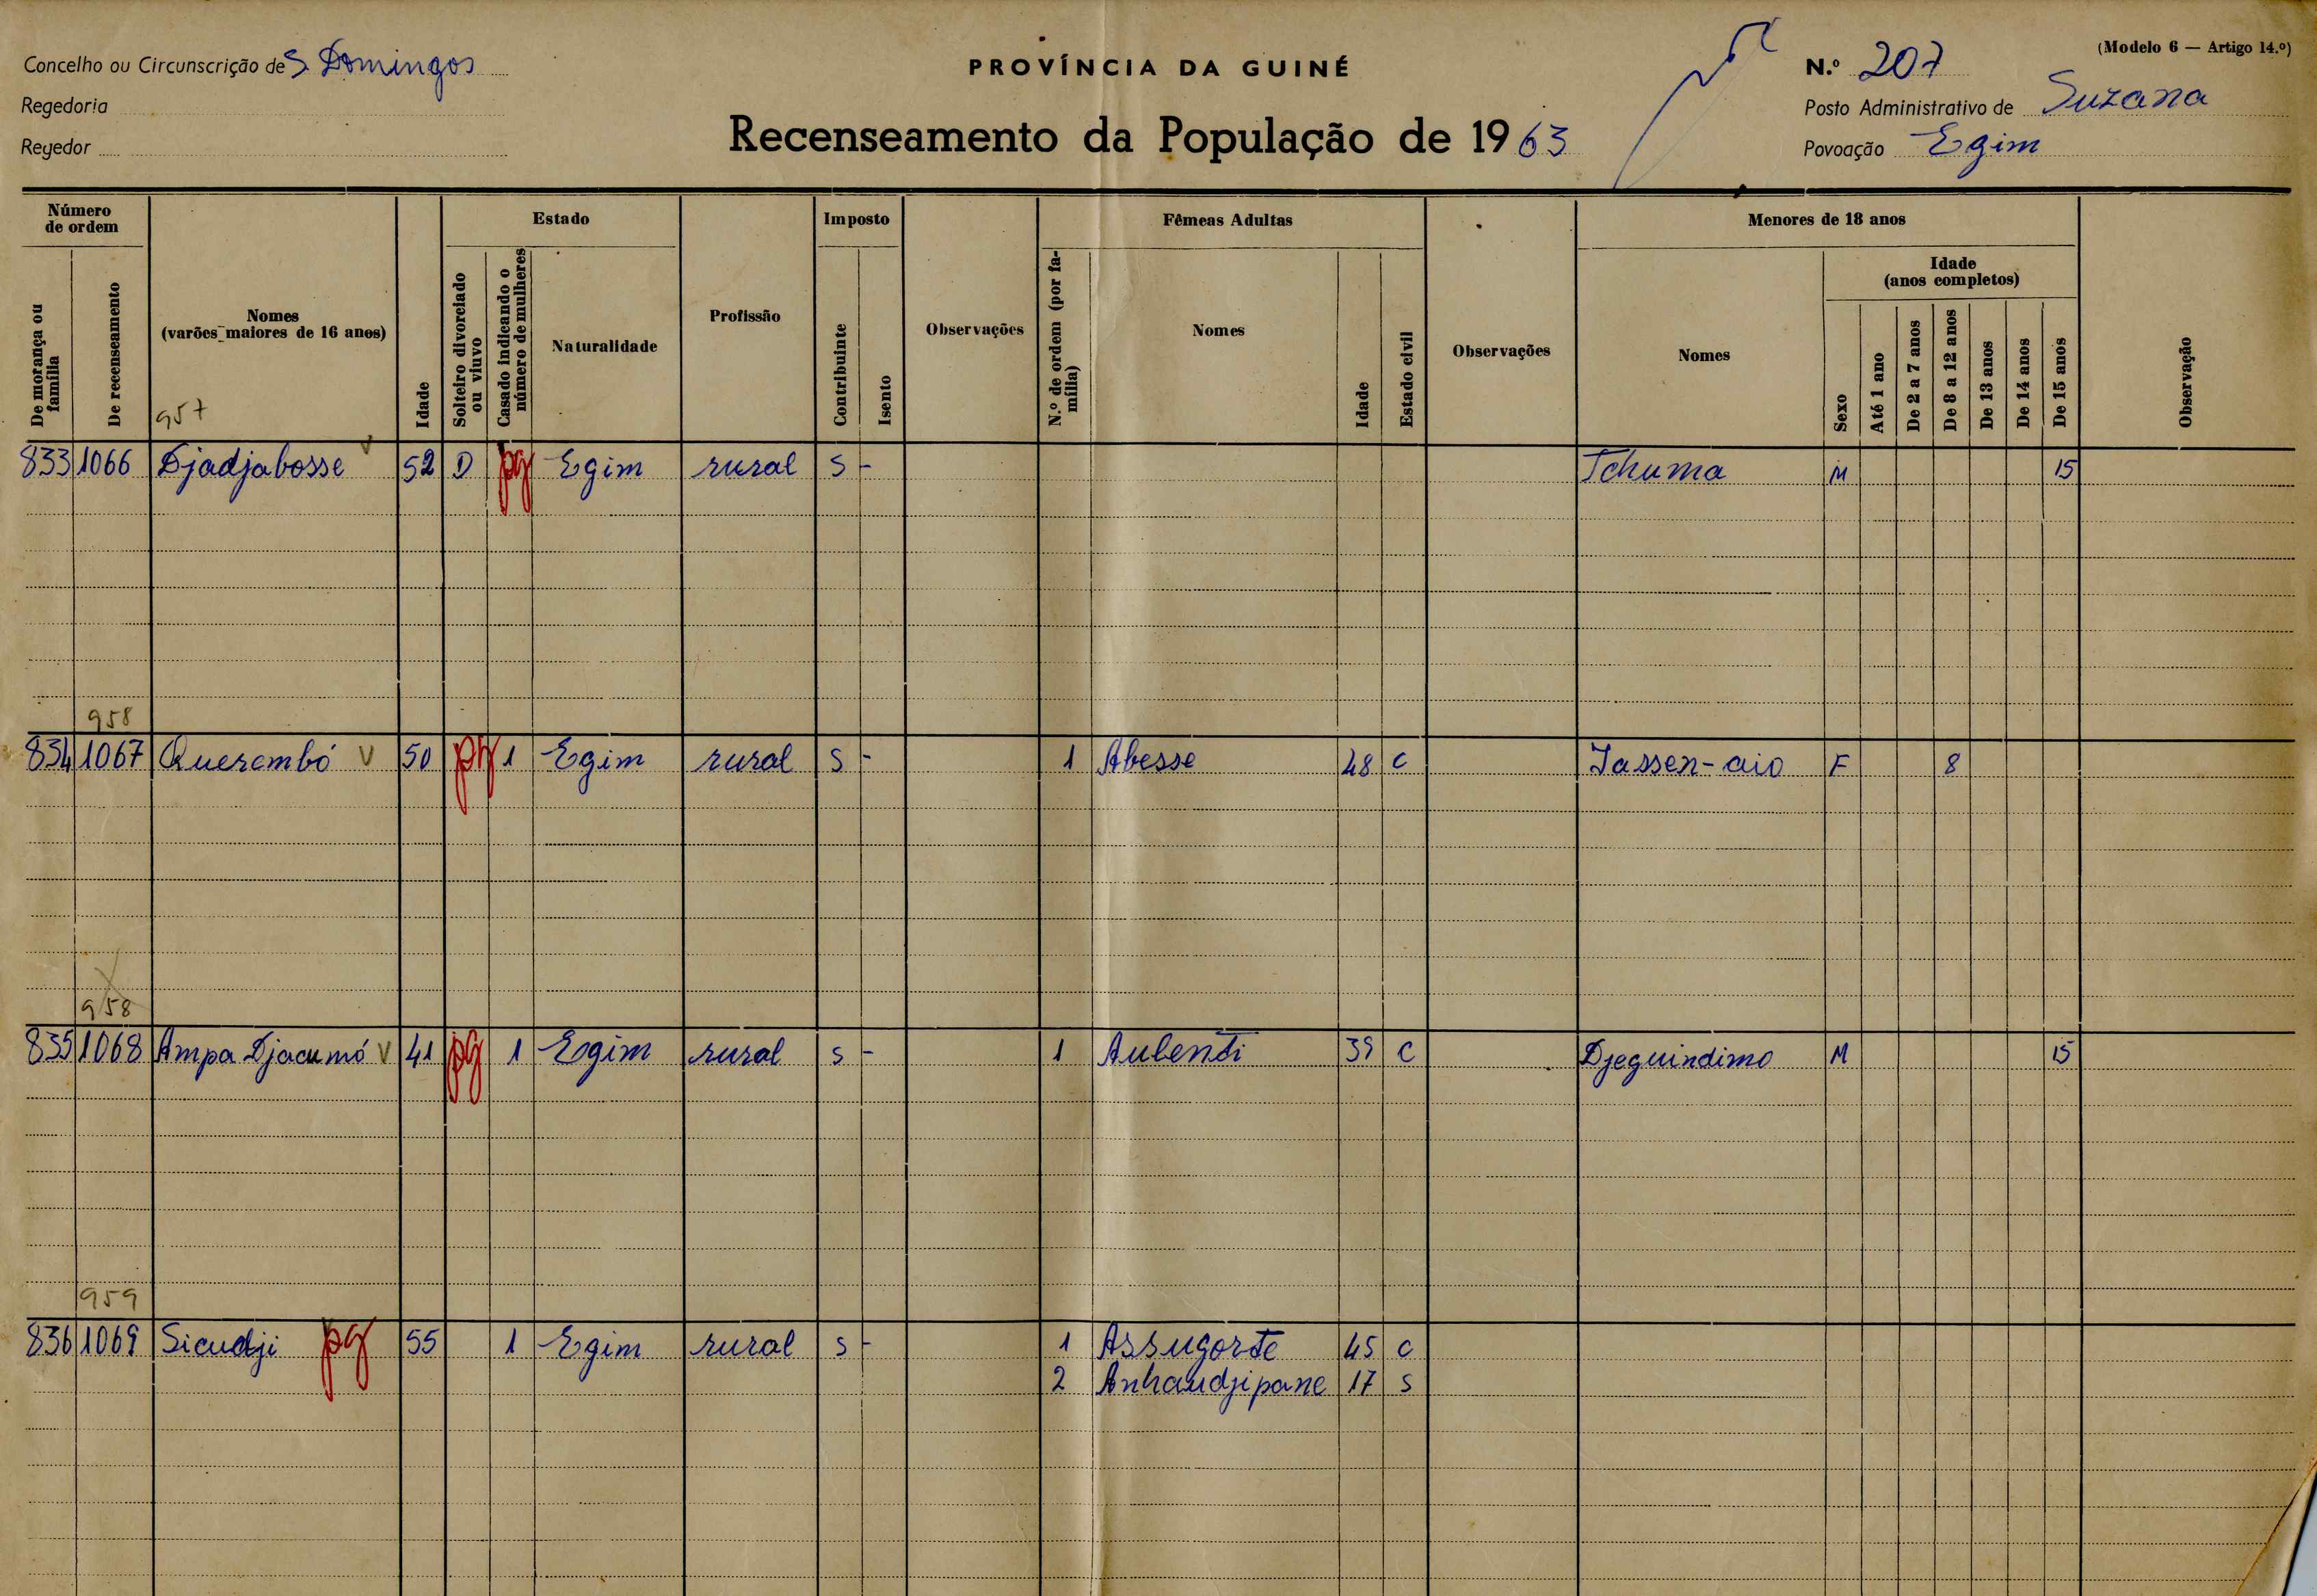 Concelho ou Circunscrição de S. Domingos
Regedoria
Regedor
PROVÍNCIA DA GUINÉ
Recenseamento da População de 1963
(Modelo 6 — Artigo 14.º)
N.º 207
Posto Administrativo de Suzana
Povoação Egim
Número de ordem
De morança ou família
De recenseamento
Nomes
(varões maiores de 16 anos)
957
Idade
Estado
Solteiro divorciado ou viuvo
Casado indicando o número de mulheres
Naturalidade
Profissão
Imposto
Contribuinte
Isento
Observações
Fêmeas Adultas
N.º de ordem (por família)
Nomes
Idade
Estado civil
Observações
Menores de 18 anos
Nomes
Sexo
Idade
(anos completos)
Até 1 ano
De 2 a 7 anos
De 8 a 12 anos
De 13 anos
De 14 anos
De 15 anos
Observação
833 1066 Djadjabosse V 52 D pg Egim rural S - Tchuma M 15
958
834 1067 Querembó V 50 pg 1 Egim rural S - 1 Abesse 48 C Jassen-aio F 8
958
835 1068 Ampa Djacumó V 41 pg 1 Egim rural S - 1 Aubenti 39 C Djeguindimo M 15
959
836 1069 Sicudji pg 55 1 Egim rural S - 1 Assugorte 45 C
2 Anhaudjipane 17 S